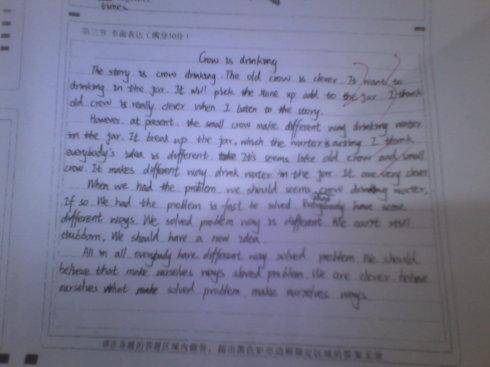 times
第三节 书面表达（满分30分）
Crow is drinking
The story is crow drinking. The old crow is clever. It wants to
drinking in the jar. It will pick the stone up add to the jar. I think
old crow is really clever when I listen to the story.
However, at present, the small crow make different way drinking warter
in the jar. It break up the jar, which the warter is . I think
everybody's idea is different. It's seems like old crow and small
crow. It makes different way drink warter in the jar. It are very clever
When we had the problem, we should seems crow drinking warter,
If so. We had the problem is fast be solved. Everybody have some
different ways. We solved problem way is different. We can't still
stubborn. We should have a new idea.
All in all, everybody have different way solved problem. We should
believe that make ourselves ways problem. We are clever, believe
ourselves what make solved problem, make ourselves ways.
请在各题的答题区域内做答，超出黑色矩形边框限定区域的答案无效